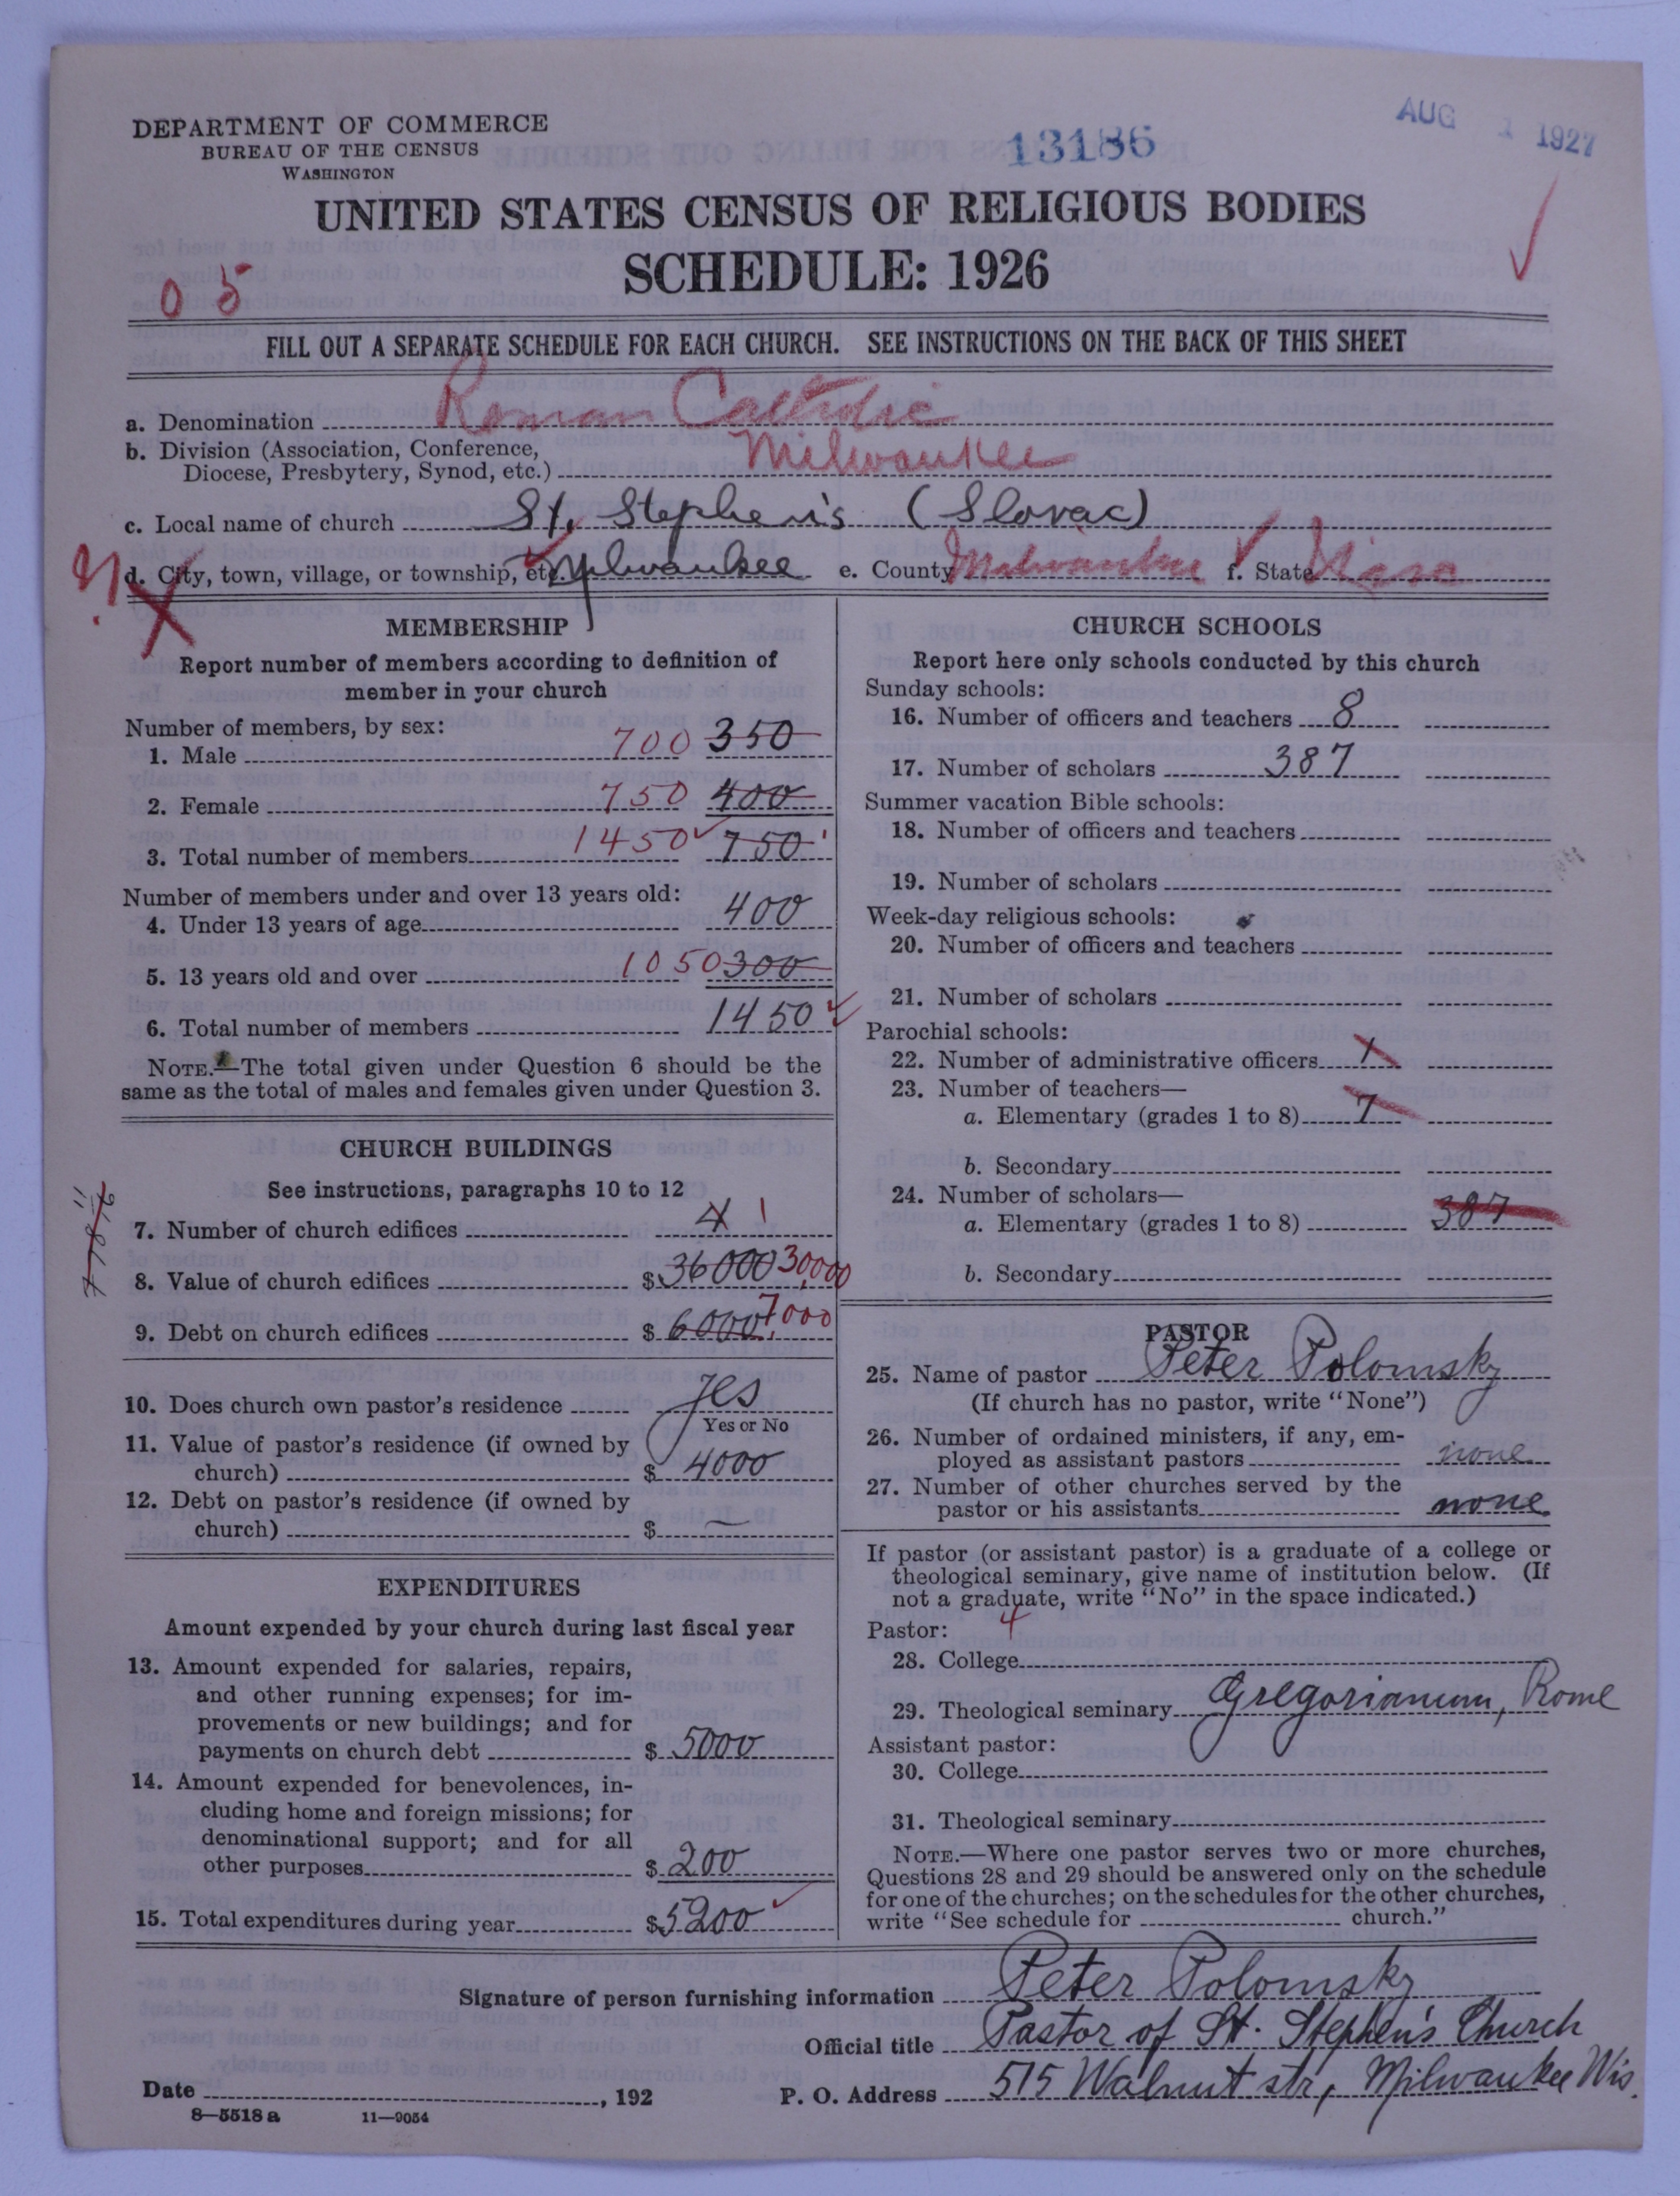 DEPARTMENT OF COMMERCE
BUREAU OF THE CENSUS
WASHINGTON
13186
AUG 1 1927
UNITED STATES CENSUS OF RELIGIOUS BODIES
SCHEDULE: 1926
05
FILL OUT A SEPARATE SCHEDULE FOR EACH CHURCH. SEE INSTRUCTIONS ON THE BACK OF THIS SHEET
a. Denomination Roman Catholic
b. Division (Association, Conference,
Diocese, Presbytery, Synod, etc.) Milwaukee
c. Local name of church St. Stephen's (Slovac)
d. City, town, village, or township, etc. Milwaukee e. County Milwaukee f. State Wisc
MEMBERSHIP
Report number of members according to definition of
member in your church
Number of members, by sex:
1. Male 700 350
2. Female 750 400
3. Total number of members 1450 750
Number of members under and over 13 years old:
4. Under 13 years of age 400
5. 13 years old and over 1050 300
6. Total number of members 1450
NOTE.—The total given under Question 6 should be the
same as the total of males and females given under Question 3.
CHURCH BUILDINGS
See instructions, paragraphs 10 to 12
7. Number of church edifices 1
8. Value of church edifices $ 36000 30,000
9. Debt on church edifices $ 6000 7,000
10. Does church own pastor's residence Yes
Yes or No
11. Value of pastor's residence (if owned by
church) $ 4000
12. Debt on pastor's residence (if owned by
church) $ —
EXPENDITURES
Amount expended by your church during last fiscal year
13. Amount expended for salaries, repairs,
and other running expenses; for im-
provements or new buildings; and for
payments on church debt $ 5000
14. Amount expended for benevolences, in-
cluding home and foreign missions; for
denominational support; and for all
other purposes $ 200
15. Total expenditures during year $ 5200
CHURCH SCHOOLS
Report here only schools conducted by this church
Sunday schools:
16. Number of officers and teachers 8
17. Number of scholars 387
Summer vacation Bible schools:
18. Number of officers and teachers
19. Number of scholars
Week-day religious schools:
20. Number of officers and teachers
21. Number of scholars
Parochial schools:
22. Number of administrative officers 1
23. Number of teachers—
a. Elementary (grades 1 to 8) 7
b. Secondary
24. Number of scholars—
a. Elementary (grades 1 to 8) 387
b. Secondary
PASTOR
25. Name of pastor Peter Polomsky
(If church has no pastor, write "None")
26. Number of ordained ministers, if any, em-
ployed as assistant pastors none
27. Number of other churches served by the
pastor or his assistants none
If pastor (or assistant pastor) is a graduate of a college or
theological seminary, give name of institution below. (If
not a graduate, write "No" in the space indicated.)
Pastor: 4
28. College
29. Theological seminary Gregorianum, Rome
Assistant pastor:
30. College
31. Theological seminary
NOTE.—Where one pastor serves two or more churches,
Questions 28 and 29 should be answered only on the schedule
for one of the churches; on the schedules for the other churches,
write "See schedule for church."
Signature of person furnishing information Peter Polomsky
Official title Pastor of St. Stephen's Church
Date , 192 P. O. Address 515 Walnut str, Milwaukee Wis.
8—5518 a 11—9054